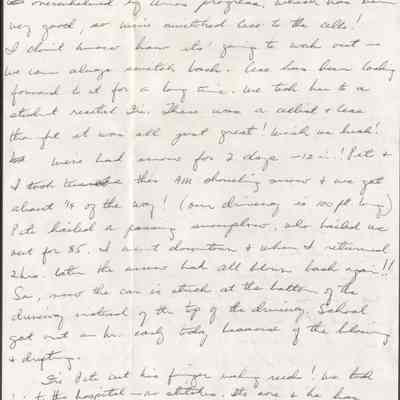 overwhelmed by Anna's progress, which has been
very good, so we've switched Cess to the cello!
I don't know how its' going to work out -
We can always switch back. Cess has been looking
forward to it for a long time. We took her to a
student recital Fri. There was a cellist & Cess
thought it was all just great! Wish us luck!
We've had snow for 2 days - 12 in.! Pete &
I took this AM shoveling snow & we got
about 1/4 of the way! (our driveway is 100 ft. long)
Pete hailed a passing snowplow, who bailed us
out for $5. I went downtown & when I returned
2 hrs. later the snow had all blown back again!!
So, now the car is stuck at the bottom of the
driveway instead of the top of the driveway. School
got out an hr. early today because of the blowing
& drifting.
Fri Pete cut his finger making reeds! We took
him to the hospital - no stitches. Its sore & he has